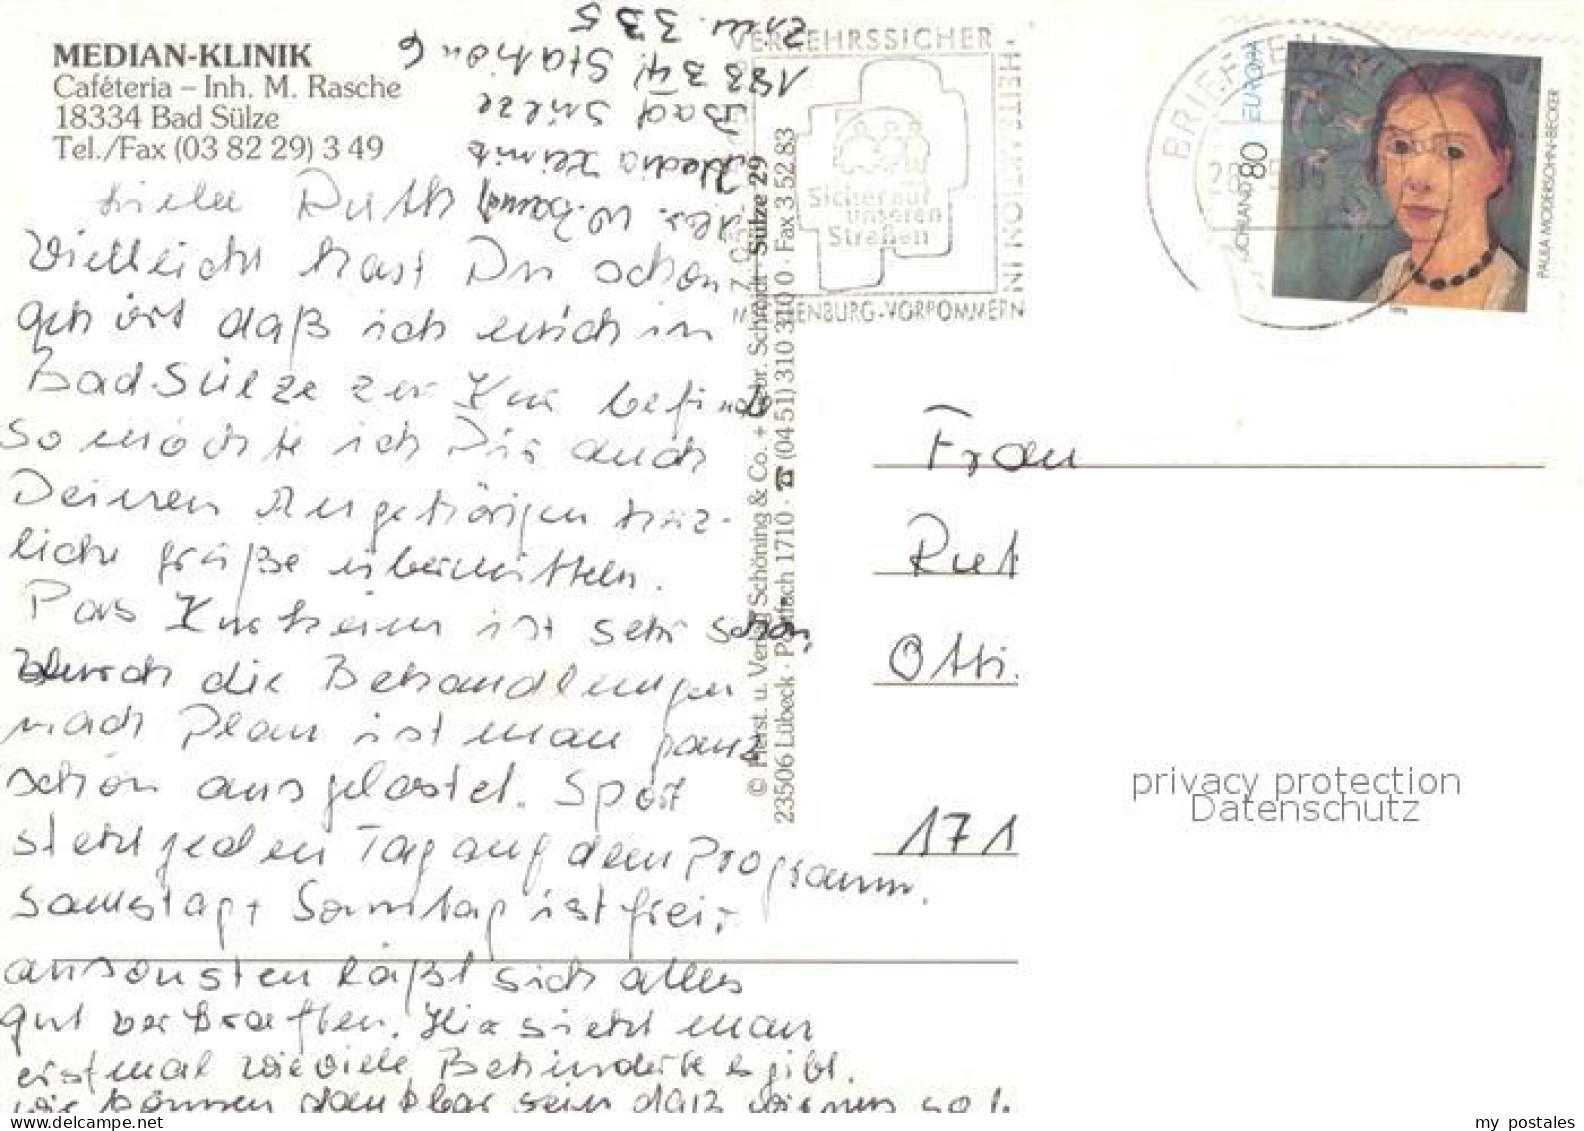 MEDIAN-KLINIK
Caféteria – Inh. M. Rasche
18334 Bad Sülze
Tel./Fax (03 82 29) 3 49
Station 6
18334
Bad Sülze
335
Media Klinik
Liebe Ruth
Vielleicht hast Du schon
gehört daß ich mich in
Bad Sülze zur Kur befinde
so möchte ich Dir auch
Deinen Angehörigen herz-
liche Grüße übermitteln.
Das Kurheim ist sehr schön,
durch die Behandlungen
nach Plan ist man ganz
schön ausgelastet. Sport
steht jeden Tag auf dem Programm.
Samstag + Sonntag ist frei,
ansonsten läßt sich alles
gut verkraften. Hier sieht man
erstmal wieviele Behinderte es gibt.
wir können dankbar sein daß wir nun so
© Herst. u. Verlag Schöning & Co. + Gebr. Schmidt · Sülze 29
23506 Lübeck · Postfach 1710 · ☎ (04 51) 310 310 0 · Fax 3 52 83
VERKEHRSSICHER-
HEITSAKTION IN
MECKLENBURG-VORPOMMERN
Sicher auf
unseren
Straßen
BRIEFZEN
80
EUROPA
PAULA MODERSOHN-BECKER
1996
Frau
Rut
Otti.
171
privacy protection
Datenschutz
my postales